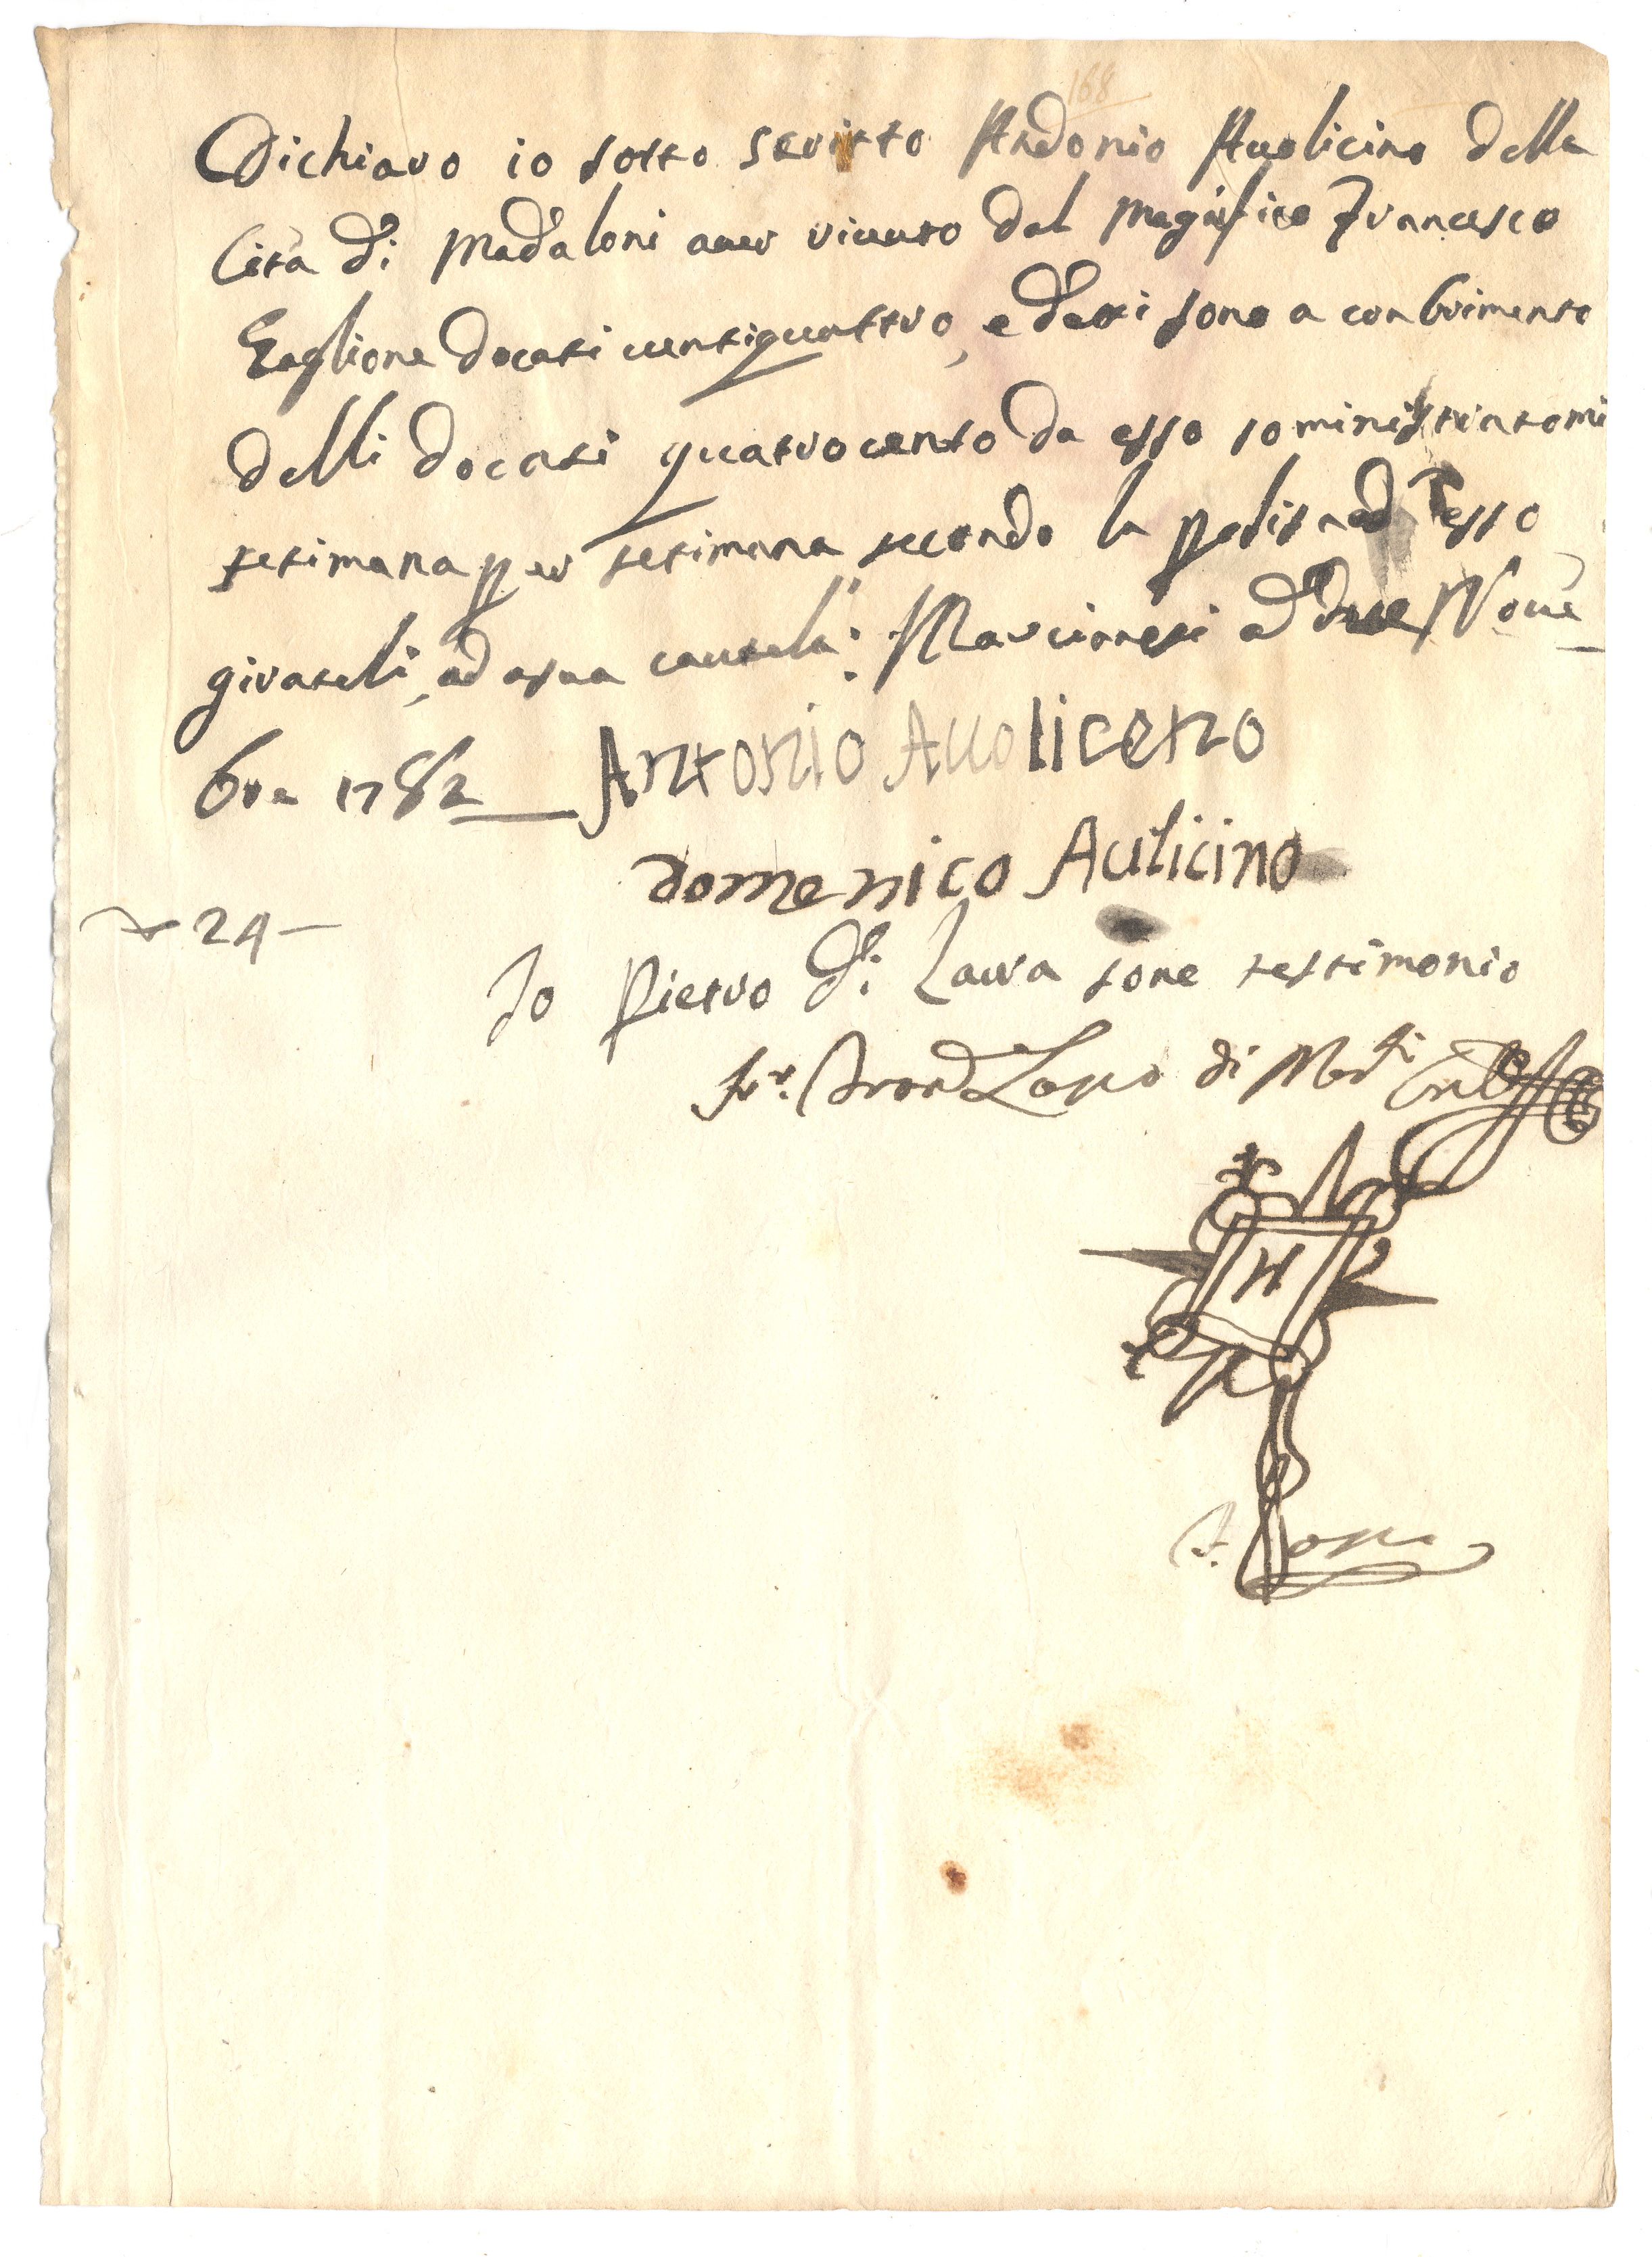 168
Dichiaro io sotto scritto Andonio Auolicino della
Cità di Madaloni auer riceuto dal Magnifico Francesco
Taglione docati uentiquattro, e detti sono a conbrimento
delli docati quatrocento da esso soministratomi
setimana per setimana secondo la polisa ad esso
girateli, ad sua cautela: Marcianesi ad due Noue
bre 1782 Antonio Auoliceno
domenico Aulicino
24
Io Pietro di Laura sone testimonio
Nr. di
N